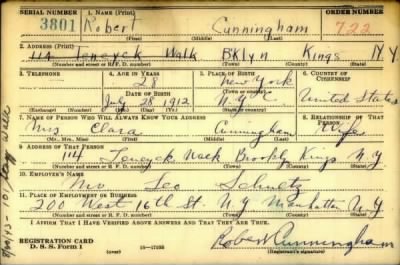 SERIAL NUMBER 1. NAME (Print) ORDER NUMBER
3801 Robert Cunningham 722
(First) (Middle) (Last)
2. ADDRESS (Print)
114 Teneyck Walk Bklyn Kings N Y
(Number and street or R. F. D. number) (Town) (County) (State)
3. TELEPHONE 4. AGE IN YEARS 5. PLACE OF BIRTH 6. COUNTRY OF CITIZENSHIP
28 New York
DATE OF BIRTH (Town or county)
July 28 1912 N.Y.C. United States
(Exchange) (Number) (Mo.) (Day) (Yr.) (State or country)
7. NAME OF PERSON WHO WILL ALWAYS KNOW YOUR ADDRESS 8. RELATIONSHIP OF THAT PERSON
Mrs Clara Cunningham Wife
(Mr., Mrs., Miss) (First) (Middle) (Last)
9. ADDRESS OF THAT PERSON
114 Teneyck Walk Brookly Kings N.Y
(Number and street or R. F. D. number) (Town) (County) (State)
10. EMPLOYER'S NAME
Leo
11. PLACE OF EMPLOYMENT OR BUSINESS
200 West 16th St. N.Y Manhattan N.Y
(Number and street or R. F. D. number) (Town) (County) (State)
I AFFIRM THAT I HAVE VERIFIED ABOVE ANSWERS AND THAT THEY ARE TRUE.
REGISTRATION CARD
D. S. S. Form 1 16—17105 Robert Cunningham
(Registrant's signature)